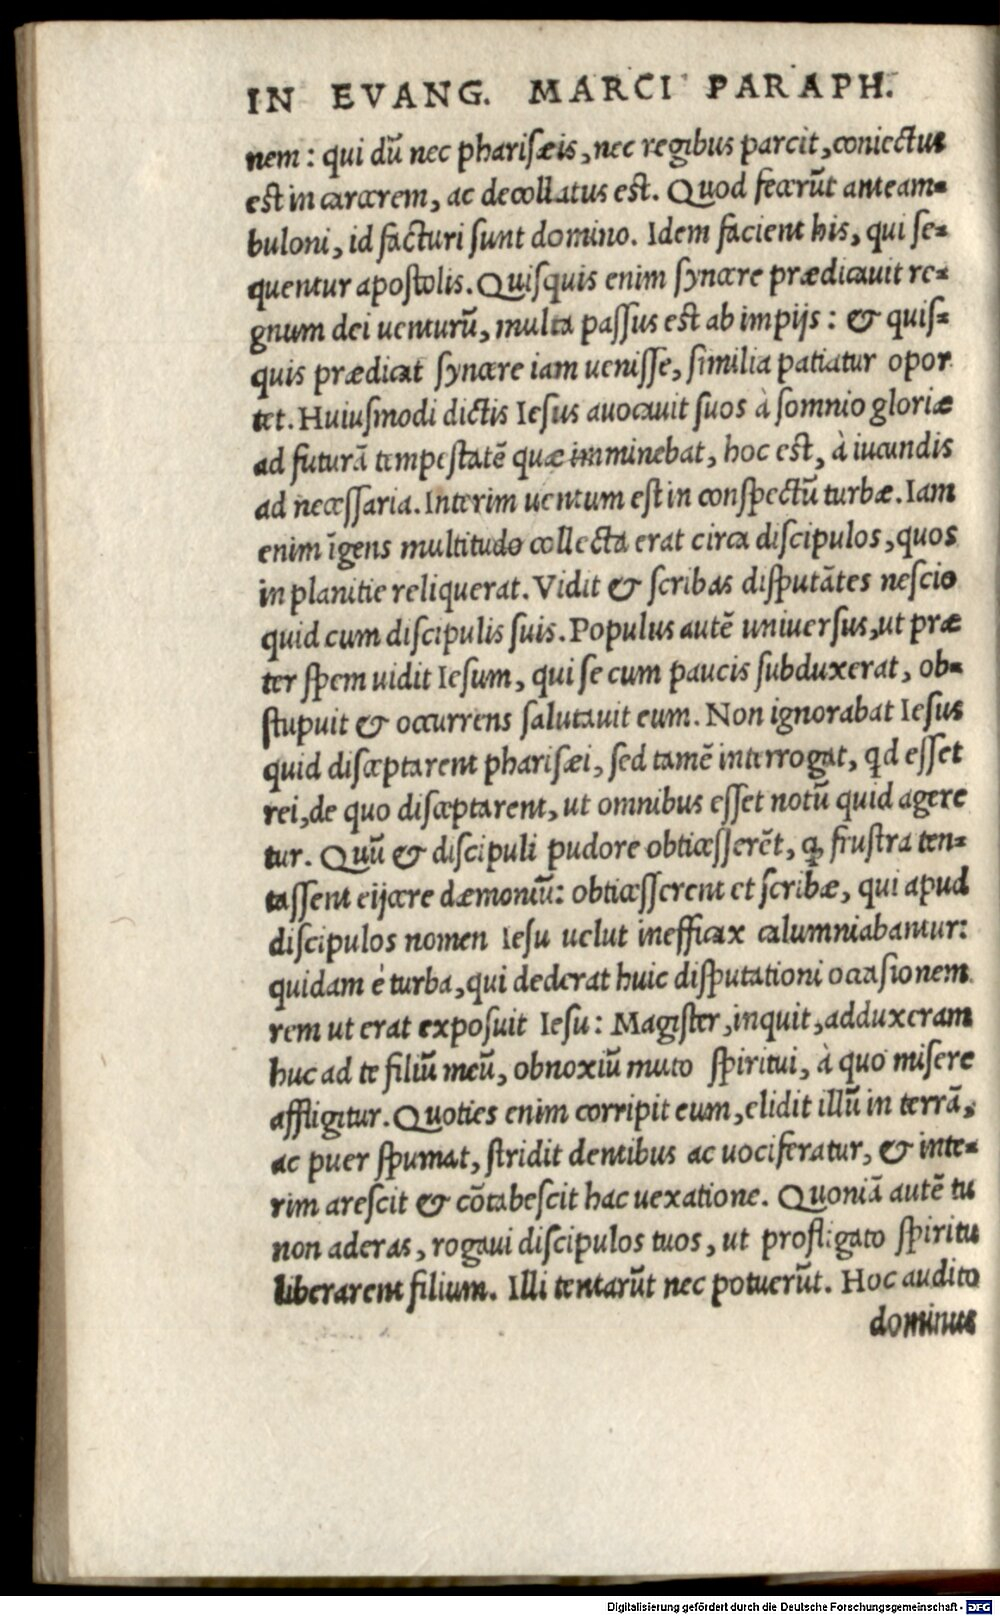 IN EVANG. MARCI PARAPH.
nem: qui dũ nec phariſæis, nec regibus parcit, coniectus
est in carcerem, ac decollatus est. Quod fecerũt anteam-
buloni, id facturi ſunt domino. Idem facient his, qui ſe-
quentur apoſtolis. Quiſquis enim ſyncere prædicauit re-
gnum dei uenturũ, multa paſſus est ab impijs: & quiſ-
quis prædicat ſyncere iam ueniſſe, ſimilia patiatur opor
tet. Huiuſmodi dictis Ieſus auocauit ſuos à ſomnio gloriæ
ad futurã tempeſtatẽ quæ imminebat, hoc est, à iucundis
ad neceſſaria. Interim uentum est in conſpectũ turbæ. Iam
enim ĩgens multitudo collecta erat circa diſcipulos, quos
in planitie reliquerat. Vidit & ſcribas diſputãtes neſcio
quid cum diſcipulis ſuis. Populus autẽ uniuerſus, ut præ
ter ſpem uidit Ieſum, qui ſe cum paucis ſubduxerat, ob-
ſtupuit & occurrens ſalutauit eum. Non ignorabat Ieſus
quid diſceptarent phariſæi, ſed tamẽ interrogat, qd eſſet
rei, de quo diſceptarent, ut omnibus eſſet notũ quid agere
tur. Quũ & diſcipuli pudore obticeſſerẽt, ꝙ fruſtra ten-
taſſent eijcere dæmoniũ: obticeſſerent et ſcribæ, qui apud
diſcipulos nomen Ieſu uelut inefficax calumniabantur:
quidam è turba, qui dederat huic diſputationi occaſionem
rem ut erat expoſuit Ieſu: Magiſter, inquit, adduxeram
huc ad te filiũ meũ, obnoxiũ muto ſpiritui, à quo miſere
affligitur. Quoties enim corripit eum, elidit illũ in terrã,
ac puer ſpumat, ſtridit dentibus ac uociferatur, & inte-
rim areſcit & cõtabeſcit hac uexatione. Quoniã autẽ tu
non aderas, rogaui diſcipulos tuos, ut profligato ſpiritu
liberarent filium. Illi tentarũt nec potuerũt. Hoc audito
dominus
Digitalisierung gefördert durch die Deutsche Forschungsgemeinschaft - DFG